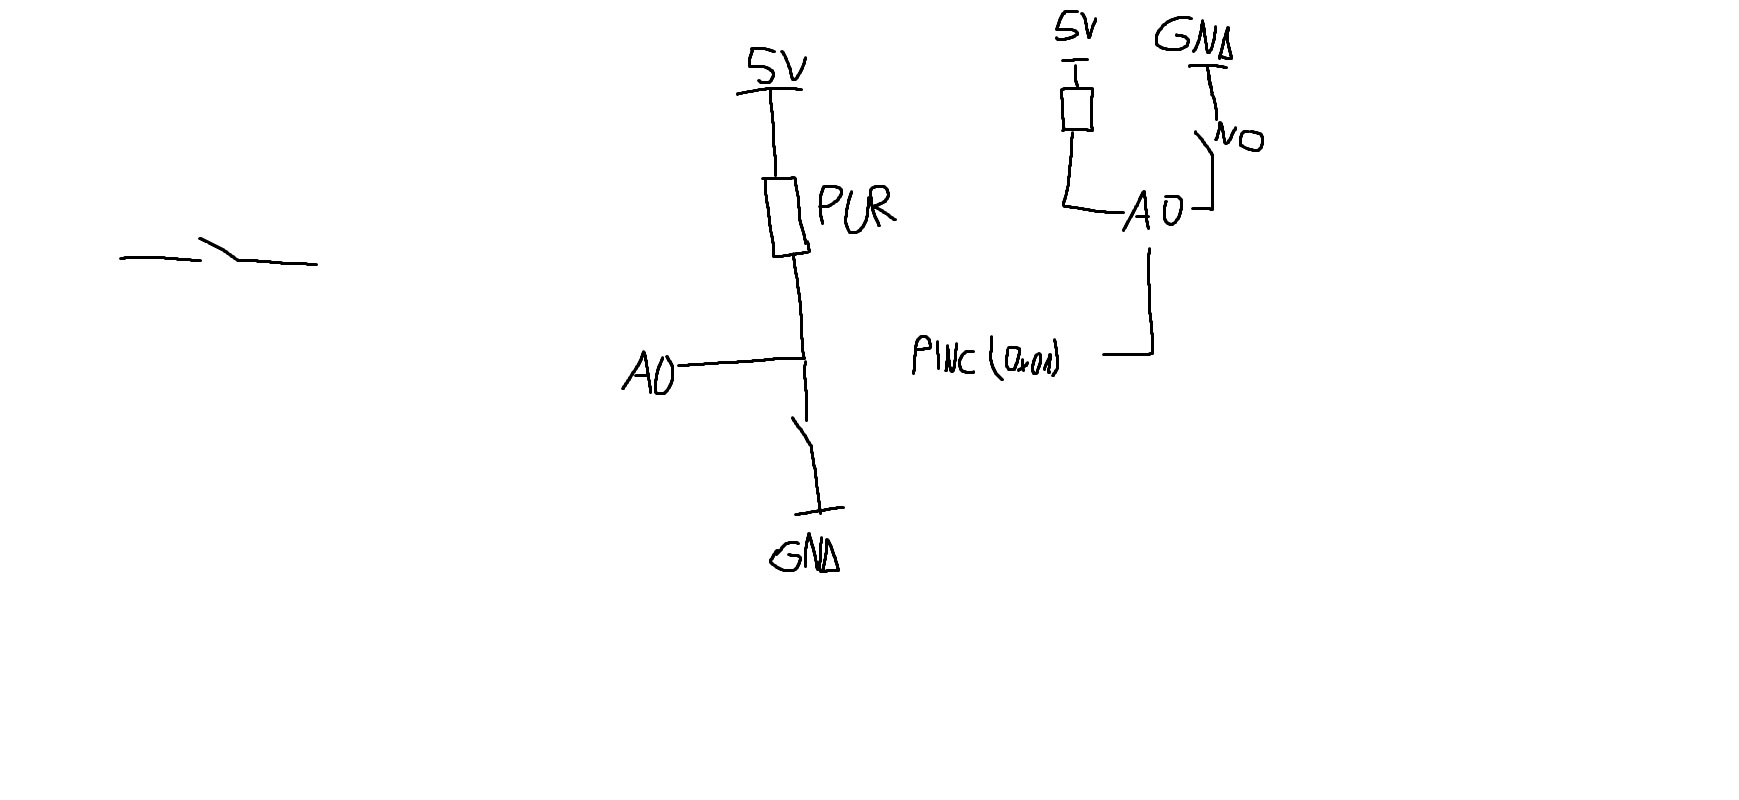 5V
PUR
A0
GND
5V
GND
NO
A0
PINC (0x01)